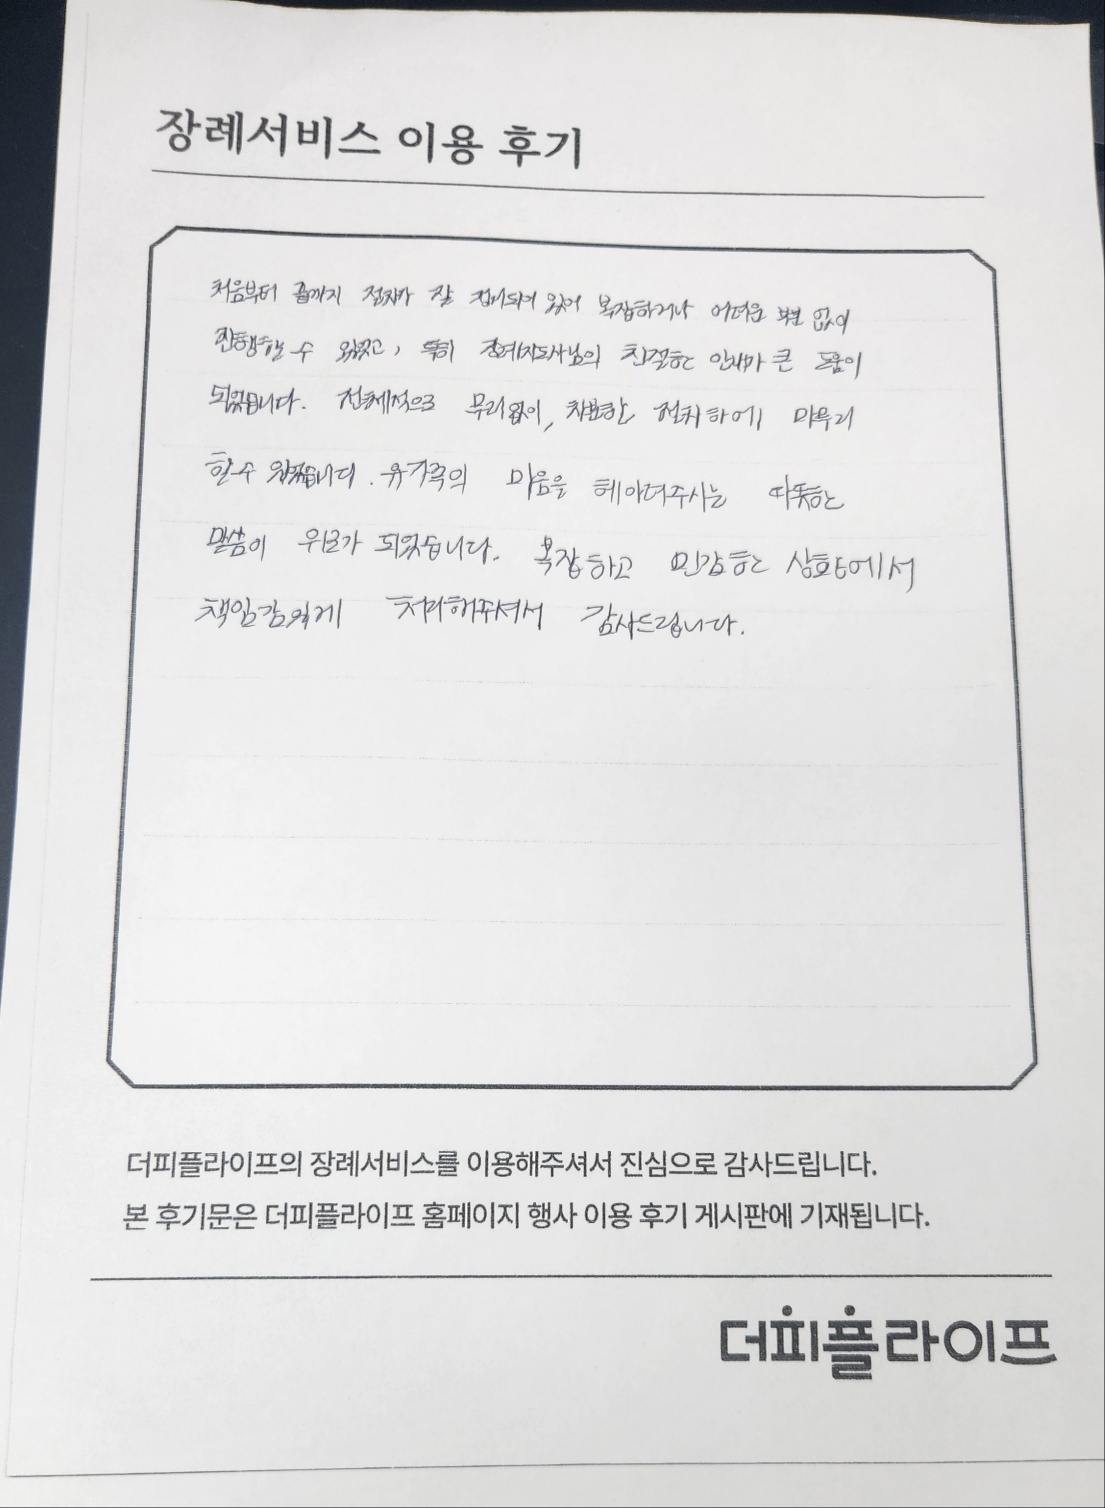 장례서비스 이용 후기
처음부터 끝까지 절차가 잘 정리되어 있어 복잡하거나 어려운 부분 없이
진행할 수 있었고, 특히 장례지도사님의 친절한 안내가 큰 도움이
되었습니다. 전체적으로 무리없이, 차분한 절차하에 마무리
할수 있었습니다. 유가족의 마음을 헤아려주시는 따뜻한
말씀이 위로가 되었습니다. 복잡하고 민감한 상황에서
책임감있게 처리해주셔서 감사드립니다.
더피플라이프의 장례서비스를 이용해주셔서 진심으로 감사드립니다.
본 후기문은 더피플라이프 홈페이지 행사 이용 후기 게시판에 기재됩니다.
더피플라이프